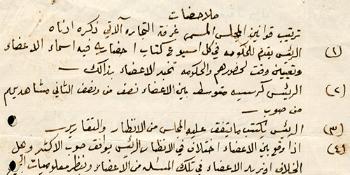 ملاحضات
ترتيب قوانين المجلس المسمى غرفة التجارة الآتي ذكره ادناه
(١) الرئيس يقدم للحكومه في كل اسبوع كتاب احضاريه فيه اسماء الاعضاء
وتعيين وقت لحضورهم والحكومه تخبر الاعضاء بذلك —
(٢) الرئيس كرسيه متوسط بين الاعضاء نصف من ونصف الثاني مشاهديهم
من صوب —
(٣) الرئيس يكتب ما يتفق عليه المجلس من الانظار والتقارير —
(٤) اذا وقع بين الاعضاء اختلاف في الانظار الرئيس يوقف صوب الاكثر وهل
الخلاف اونريد الاعضاء في تلك المسئله من الاعضاء وينظر معلوميات